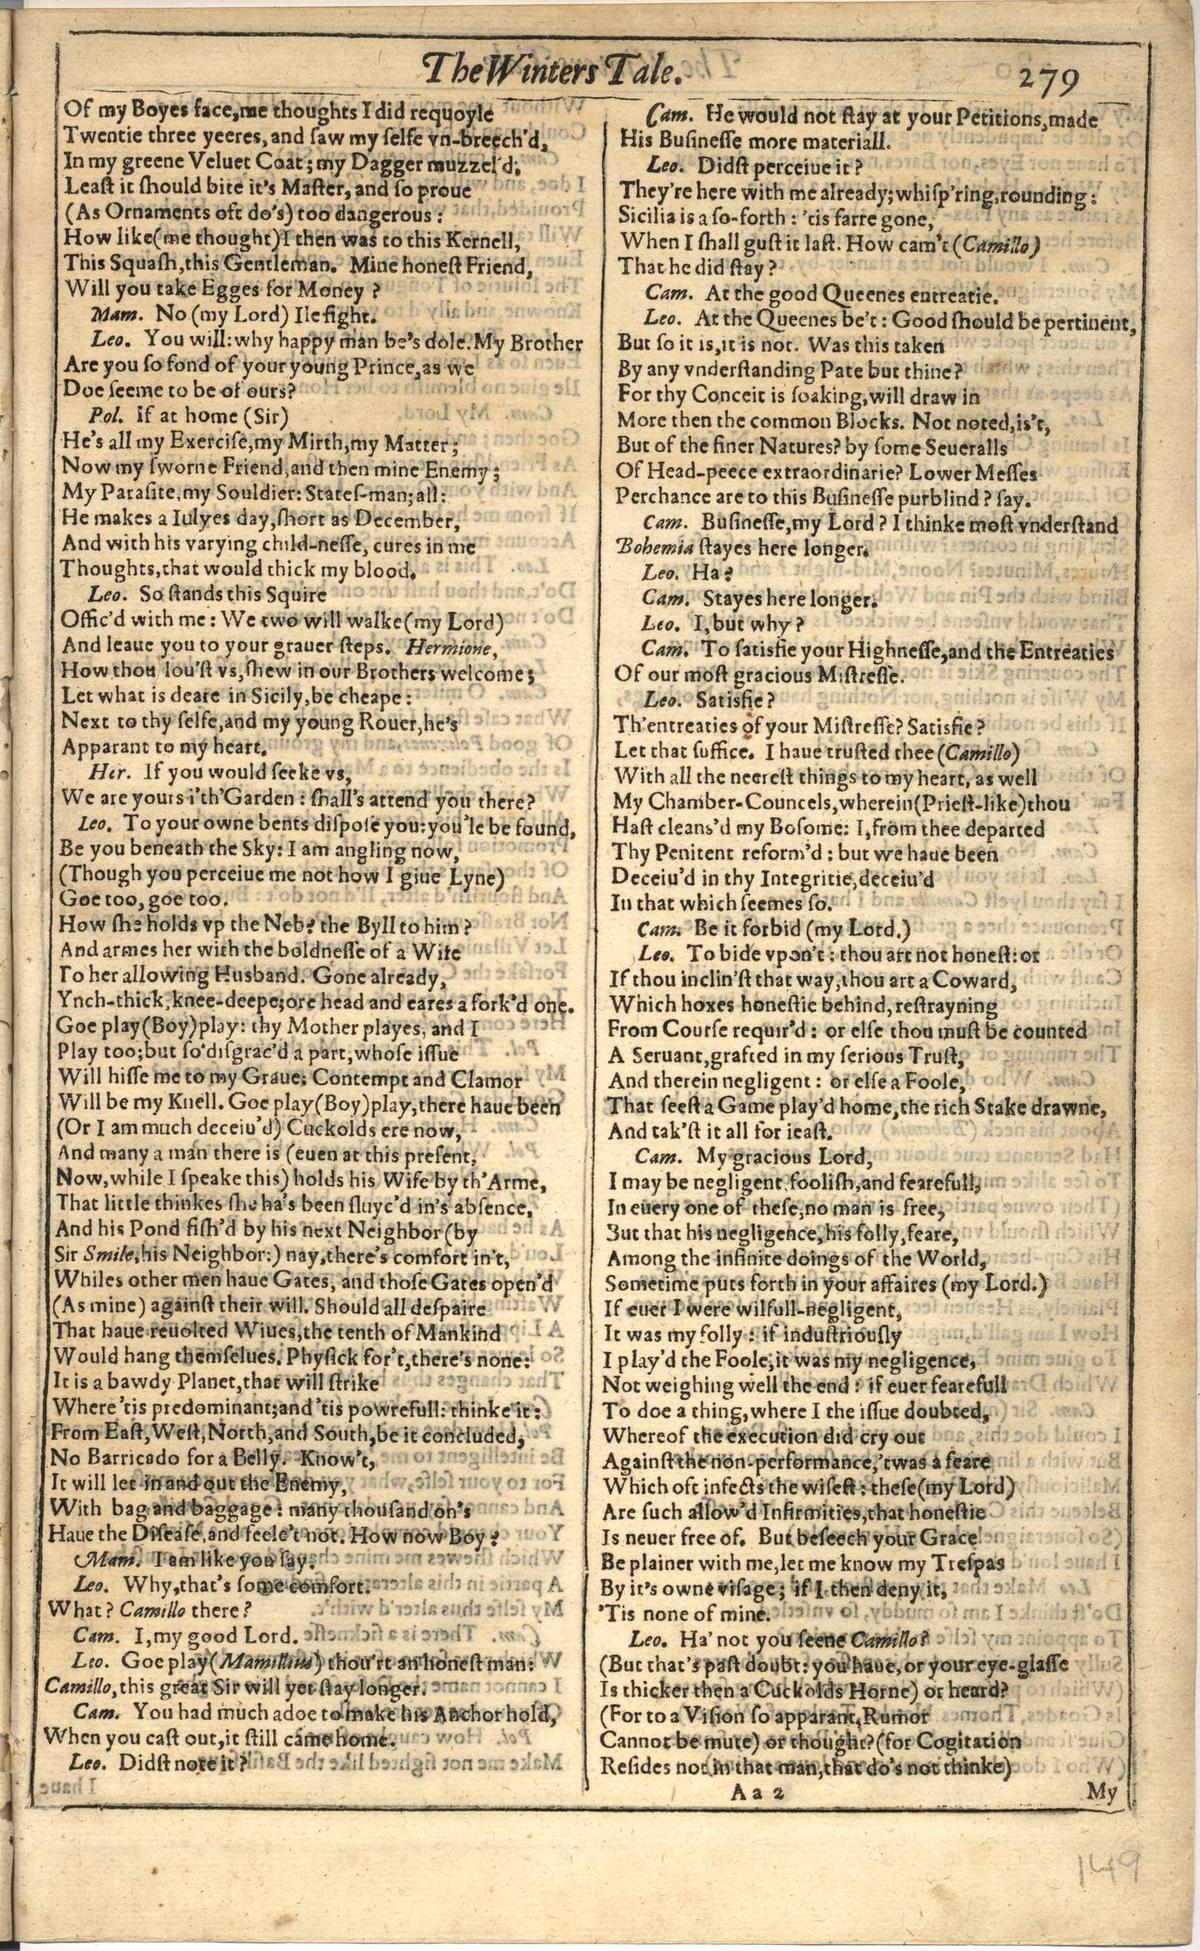 The Winters Tale. 279
Of my Boyes face, me thoughts I did requoyle
Twentie three yeeres, and saw my selfe vn-breech'd,
In my greene Veluet Coat; my Dagger muzzel'd;
Least it should bite it's Master, and so proue
(As Ornaments oft do's) too dangerous:
How like (me thought) I then was to this Kernell,
This Squash, this Gentleman. Mine honest Friend,
Will you take Egges for Money?
Mam. No (my Lord) Ile fight.
Leo. You will: why happy man be's dole. My Brother
Are you so fond of your young Prince, as we
Doe seeme to be of ours?
Pol. If at home (Sir)
He's all my Exercise, my Mirth, my Matter;
Now my sworne Friend, and then mine Enemy;
My Parasite, my Souldier: States-man; all:
He makes a Iulyes day, short as December,
And with his varying child-nesse, cures in me
Thoughts, that would thick my blood.
Leo. So stands this Squire
Offic'd with me: We two will walke (my Lord)
And leaue you to your grauer steps. Hermione,
How thou lou'st vs, shew in our Brothers welcome;
Let what is deare in Sicily, be cheape:
Next to thy selfe, and my young Rouer, he's
Apparant to my heart.
Her. If you would seeke vs,
We are yours i'th'Garden: shall's attend you there?
Leo. To your owne bents dispose you: you'le be found,
Be you beneath the Sky: I am angling now,
(Though you perceiue me not how I giue Lyne)
Goe too, goe too.
How she holds vp the Neb? the Byll to him?
And armes her with the boldnesse of a Wife
To her allowing Husband. Gone already,
Ynch-thick, knee-deepe; ore head and eares a fork'd one.
Goe play (Boy) play: thy Mother playes, and I
Play too; but so disgrac'd a part, whose issue
Will hisse me to my Graue: Contempt and Clamor
Will be my Knell. Goe play (Boy) play, there haue been
(Or I am much deceiu'd) Cuckolds ere now,
And many a man there is (euen at this present,
Now, while I speake this) holds his Wife by th'Arme,
That little thinkes she ha's been sluyc'd in's absence,
And his Pond fish'd by his next Neighbor (by
Sir Smile, his Neighbor:) nay, there's comfort in't,
Whiles other men haue Gates, and those Gates open'd
(As mine) against their will. Should all despaire
That haue reuolted Wiues, the tenth of Mankind
Would hang themselues. Physick for't, there's none:
It is a bawdy Planet, that will strike
Where 'tis predominant; and 'tis powrefull: thinke it:
From East, West, North, and South, be it concluded,
No Barricado for a Belly. Know't,
It will let in and out the Enemy,
With bag and baggage: many thousand on's
Haue the Disease, and feele't not. How now Boy?
Mam. I am like you say.
Leo. Why, that's some comfort.
What? Camillo there?
Cam. I, my good Lord.
Leo. Goe play (Mamillius) thou'rt an honest man:
Camillo, this great Sir will yet stay longer.
Cam. You had much adoe to make his Anchor hold,
When you cast out, it still came home.
Leo. Didst note it?
Cam. He would not stay at your Petitions, made
His Businesse more materiall.
Leo. Didst perceiue it?
They're here with me already; whisp'ring, rounding:
Sicilia is a so-forth: 'tis farre gone,
When I shall gust it last. How cam't (Camillo)
That he did stay?
Cam. At the good Queenes entreatie.
Leo. At the Queenes be't: Good should be pertinent,
But so it is, it is not. Was this taken
By any vnderstanding Pate but thine?
For thy Conceit is soaking, will draw in
More then the common Blocks. Not noted, is't,
But of the finer Natures? by some Seueralls
Of Head-peece extraordinarie? Lower Messes
Perchance are to this Businesse purblind? say.
Cam. Businesse, my Lord? I thinke most vnderstand
Bohemia stayes here longer.
Leo. Ha?
Cam. Stayes here longer.
Leo. I, but why?
Cam. To satisfie your Highnesse, and the Entreaties
Of our most gracious Mistresse.
Leo. Satisfie?
Th'entreaties of your Mistresse? Satisfie?
Let that suffice. I haue trusted thee (Camillo)
With all the neerest things to my heart, as well
My Chamber-Councels, wherein (Priest-like) thou
Hast cleans'd my Bosome: I, from thee departed
Thy Penitent reform'd: but we haue been
Deceiu'd in thy Integritie, deceiu'd
In that which seemes so.
Cam. Be it forbid (my Lord.)
Leo. To bide vpon't: thou art not honest: or
If thou inclin'st that way, thou art a Coward,
Which hoxes honestie behind, restrayning
From Course requir'd: or else thou must be counted
A Seruant, grafted in my serious Trust,
And therein negligent: or else a Foole,
That seest a Game play'd home, the rich Stake drawne,
And tak'st it all for ieast.
Cam. My gracious Lord,
I may be negligent, foolish, and fearefull,
In euery one of these, no man is free,
But that his negligence, his folly, feare,
Among the infinite doings of the World,
Sometime puts forth in your affaires (my Lord.)
If euer I were wilfull-negligent,
It was my folly: if industriously
I play'd the Foole, it was my negligence,
Not weighing well the end: if euer fearefull
To doe a thing, where I the issue doubted,
Whereof the execution did cry out
Against the non-performance, 'twas a feare
Which oft infects the wisest: these (my Lord)
Are such allow'd Infirmities, that honestie
Is neuer free of. But beseech your Grace
Be plainer with me, let me know my Trespas
By it's owne visage; if I then deny it,
'Tis none of mine.
Leo. Ha' not you seene Camillo?
(But that's past doubt: you haue, or your eye-glasse
Is thicker then a Cuckolds Horne) or heard?
(For to a Vision so apparant, Rumor
Cannot be mute) or thought? (for Cogitation
Resides not in that man, that do's not thinke)
Aa 2 My
149